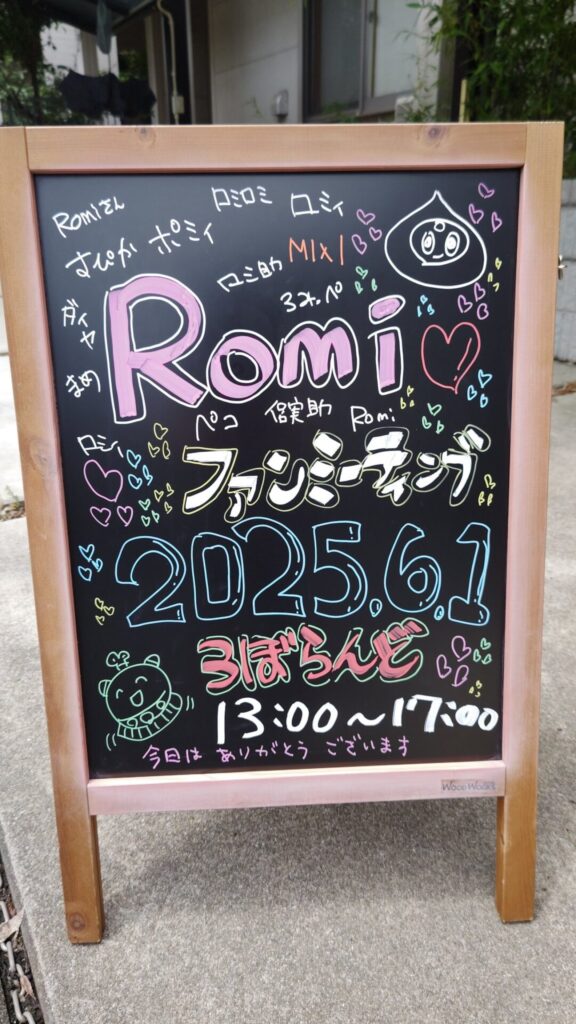 Romiさん
ロミロミ
ロミィ
すぴか
ポミィ
MIXI
ロミ助
ダイヤ
Romi
まめ
ペコ
Romi
ファンミーティング
2025.6.1
ろぼらんど
13:00～17:00
今日は ありがとう ございます
Wood Works